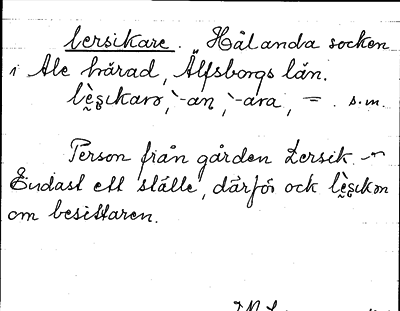 lersikare. Hålanda socken
i Ale härad, Älfsborgs län.
lè̬s̬ıkarə, `-an, `-ara, = . s.m.
Person från gården Lersik. ~
Endast ett ställe, därför ock lè̬s̬ıkən
om besittaren.